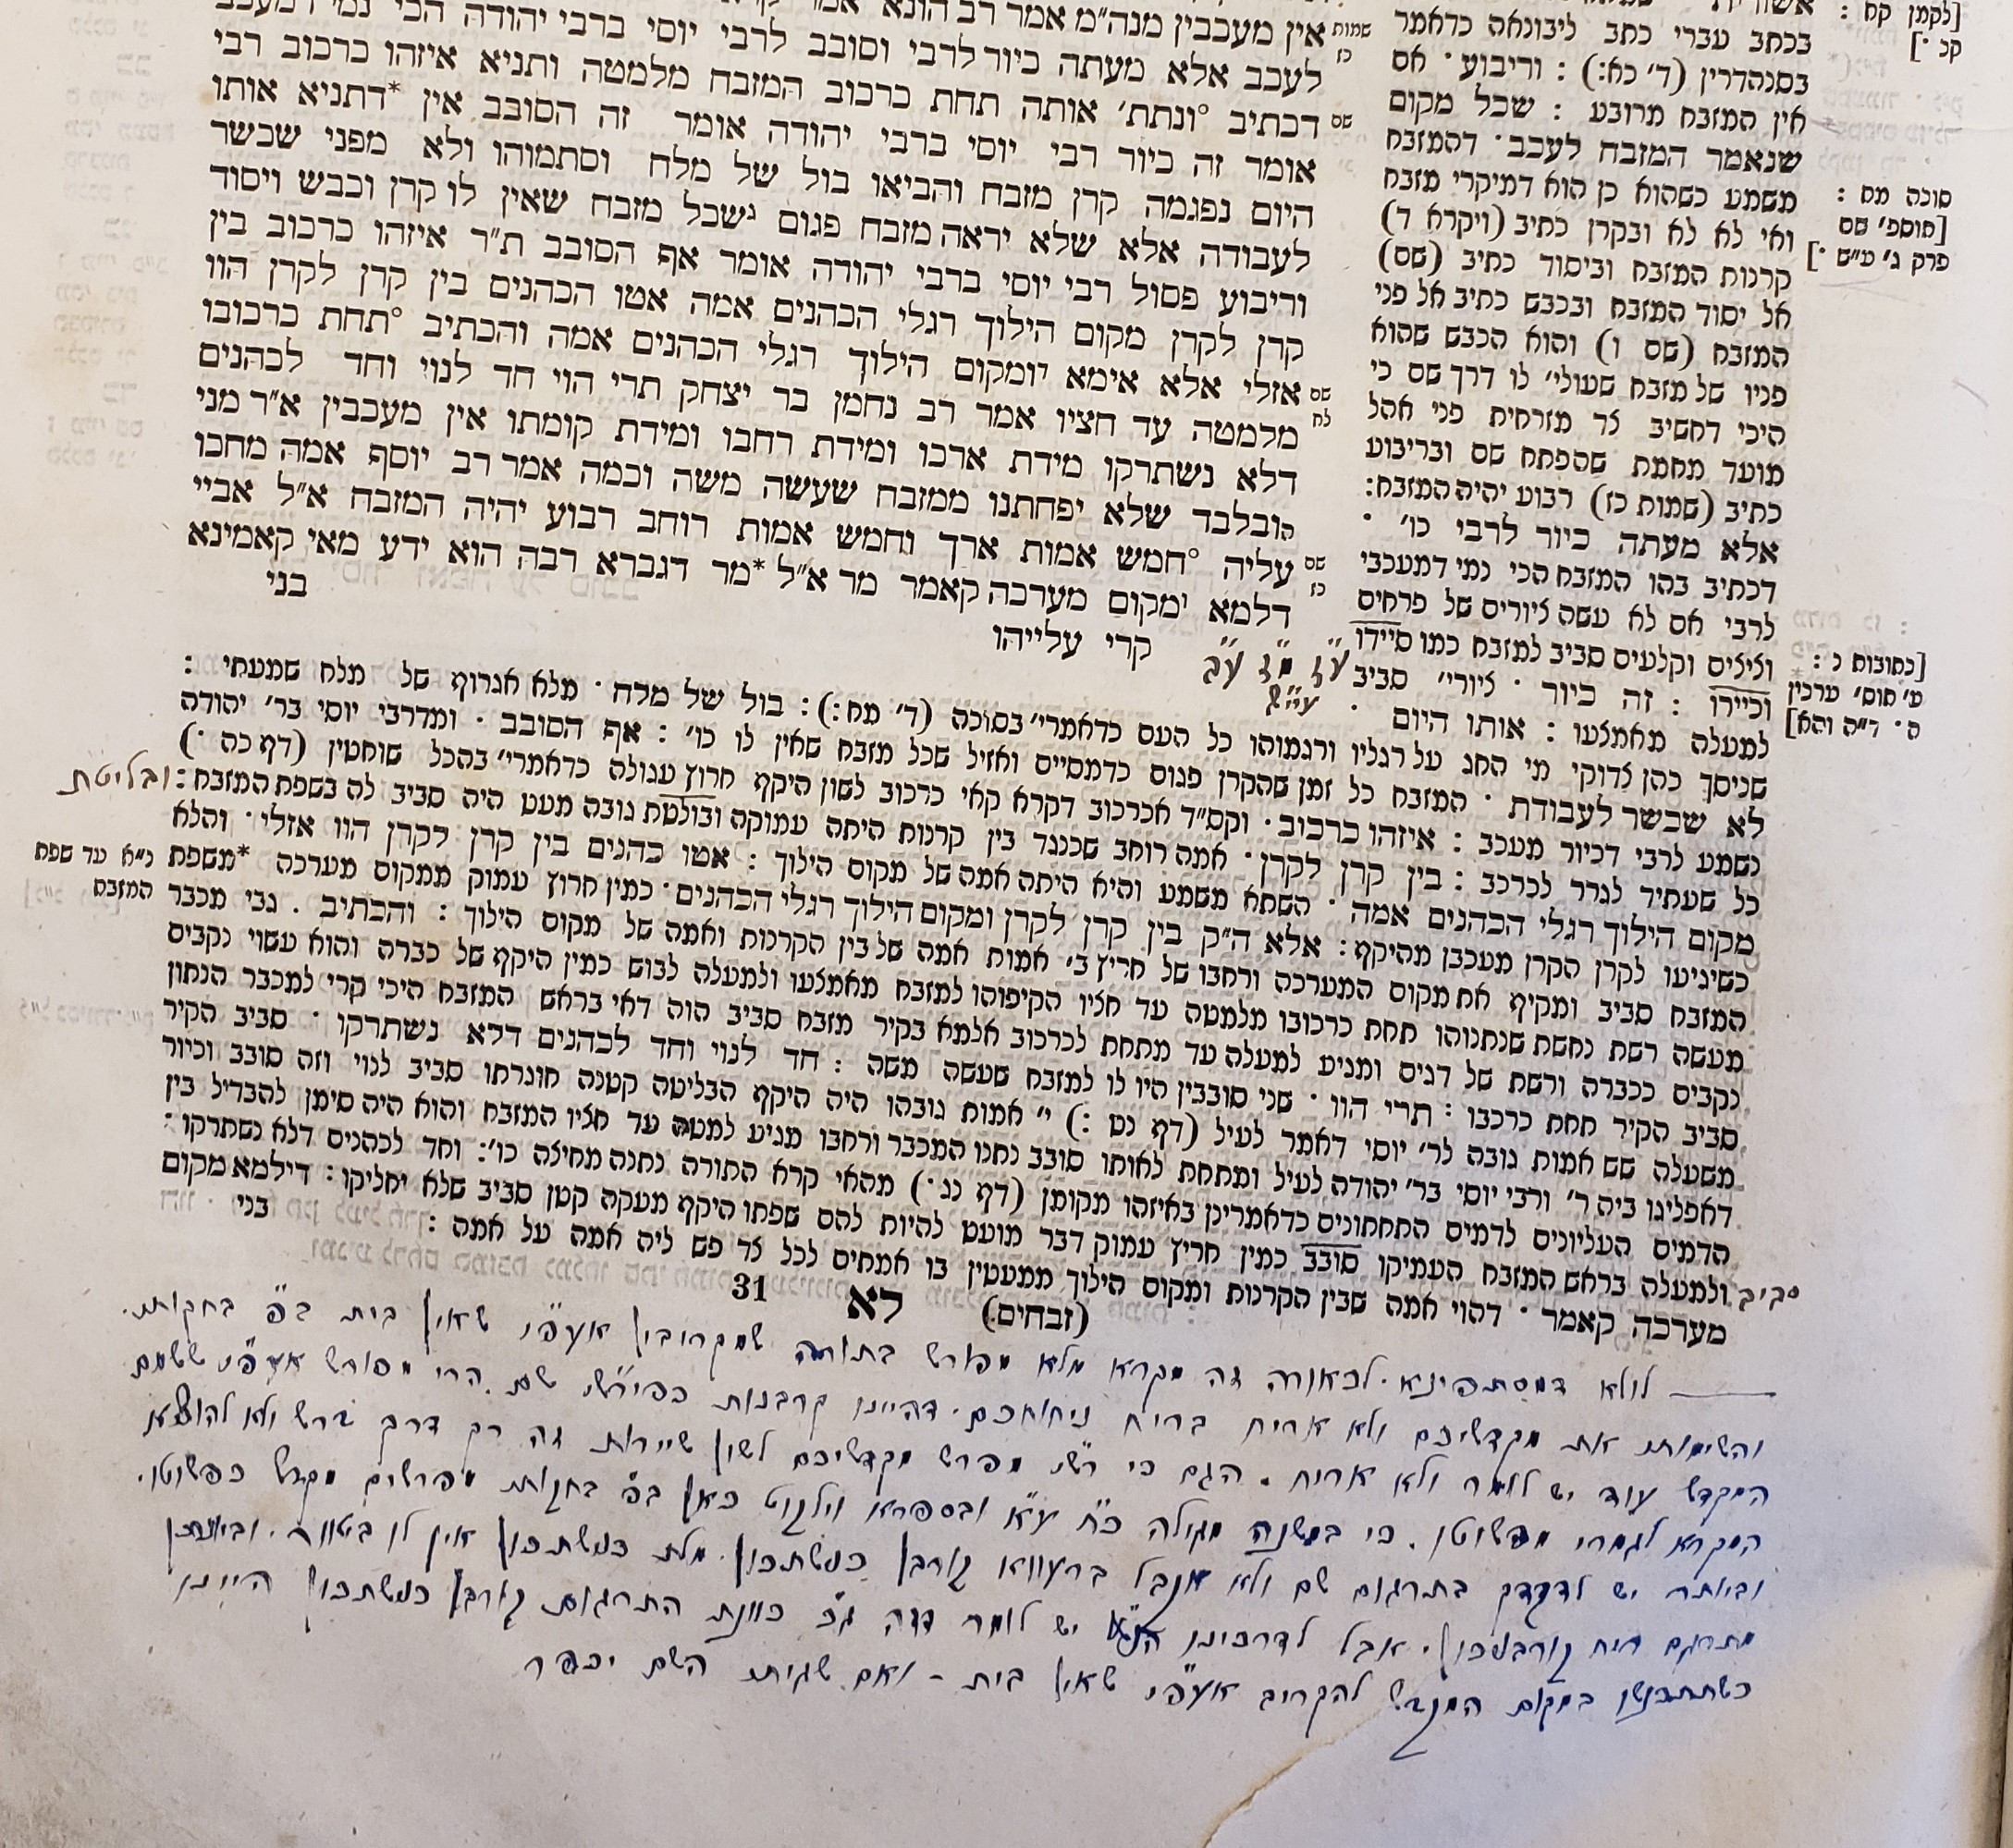 אין מעכבין מנה״מ אמר רב הונא
לעכב אלא מעתה כיור לרבי וסובב לרבי יוסי ברבי יהודה הכי נמי דמעכב
דכתיב ונתת׳ אותה תחת כרכוב המזבח מלמטה ותניא איזהו כרכוב רבי
אומר זה כיור רבי יוסי ברבי יהודה אומר זה הסובב אין *דתניא אותו
היום נפגמה קרן מזבח והביאו בול של מלח וסתמוהו ולא מפני שכשר
לעבודה אלא שלא יראה מזבח פגום שכל מזבח שאין לו קרן וכבש ויסוד
וריבוע פסול רבי יוסי ברבי יהודה אומר אף הסובב ת״ר איזהו כרכוב בין
קרן לקרן מקום הילוך רגלי הכהנים אמה אטו הכהנים בין קרן לקרן הוו
אזלי אלא אימא ומקום הילוך רגלי הכהנים אמה והכתיב °תחת כרכובו
מלמטה עד חציו אמר רב נחמן בר יצחק תרי הוי חד לנוי וחד לכהנים
דלא נשתרקו מידת ארכו ומידת רחבו ומידת קומתו אין מעכבין א״ר מני
ובלבד שלא יפחתנו ממזבח שעשה משה וכמה אמר רב יוסף אמה מחכו
עליה °חמש אמות ארך וחמש אמות רוחב רבוע יהיה המזבח א״ל אביי
דלמא מקום מערכה קאמר מר א״ל *מר דגברא רבה הוא ידע מאי קאמינא
קרי עלייהו
בני
שמות
כז
שם
שם
לח
שם
כז
בכתב עברי כתב ליבונאה כדאמר
בסנהדרין (ד׳ כא:) : וריבוע · אם
אין המזבח מרובע : שכל מקום
שנאמר המזבח לעכב · דהמזבח
משמע כשהוא כן הוא דמיקרי מזבח
ואי לא לא ובקרן כתיב (ויקרא ד)
קרנות המזבח וביסוד כתיב (שם)
אל יסוד המזבח ובכבש כתיב אל פני
המזבח (שם ו) והוא הכבש שהוא
פניו של מזבח שעולי׳ לו דרך שם כי
היכי דחשיב צד מזרחית פני אהל
מועד מחמת שהפתח שם ובריבוע
כתיב (שמות כז) רבוע יהיה המזבח:
אלא מעתה כיור לרבי כו׳ ·
דכתיב בהו המזבח הכי נמי דמעכבי
לרבי אם לא עשה ציורים של פרחים
וציצים וקלעים סביב למזבח כמו סיידו
וכיירו : זה כיור · ציורי׳ סביב
למעלה מאמצעו : אותו היום ·
שניסך כהן צדוקי מי החג על רגליו ורגמוהו כל העם כדאמרי׳ בסוכה (ד׳ מח:) : בול של מלח · מלא אגרוף של מלח שמעתי :
לא שכשר לעבודת · המזבח כל זמן שהקרן פגום כדמסיים ואזיל שכל מזבח שאין לו כו׳ : אף הסובב · ומדרבי יוסי בר׳ יהודה
נשמע לרבי דכיור מעכב : איזהו כרכוב · וקס״ד אכרכוב דקרא קאי כרכוב לשון היקף חרוץ עגולה כדאמרי׳ בהכל שוחטין (דף כה ·)
כל שעתיד לגרר לכרכב : בין קרן לקרן · אמה רוחב שכנגד בין קרנות היתה עמוקה ובולטת גובה מעט היה סביב לה בשפת המזבח :
מקום הילוך רגלי הכהנים אמה · השתא משמע והיא היתה אמה של מקום הילוך : אטו כהנים בין קרן לקרן הוו אזלי · והלא
כשיגיעו לקרן הקרן מעכבן מהיקף : אלא ה״ק בין קרן לקרן ומקום הילוך רגלי הכהנים · כמין חרוץ עמוק ממקום מערכה *משפת
המזבח סביב ומקיף את מקום המערכה ורחבו של חריץ ב׳ אמות אמה של בין הקרנות ואמה של מקום הילוך : והכתיב . גבי מכבר
מעשה רשת נחשת שנתנוהו תחת כרכובו מלמטה עד חציו הקיפוהו למזבח מאמצעו ולמעלה לבוש כמין היקף של כברה והוא עשוי נקבים
נקבים ככברה ורשת של דגים ומגיע למעלה עד מתחת לכרכוב אלמא בקיר מזבח סביב הוה דאי בראש המזבח היכי קרי למכבר הנתון
סביב הקיר תחת כרכבו : תרי הוו · שני סובבין היו לו למזבח שעשה משה : חד לנוי וחד לכהנים דלא נשתרקו · סביב הקיר
משעלה שש אמות גובה לר׳ יוסי דאמר לעיל (דף נט :) י׳ אמות גובהו היה היקף הבליטה קטנה חוגרתו סביב לנוי וזה סובב וכיור
דאפליגו ביה ר׳ ורבי יוסי בר׳ יהודה לעיל ומתחת לאותו סובב נתנו המכבר ורחבו מגיע למטה עד חציו המזבח והוא היה סימן להבדיל בין
הדמים העליונים לדמים התחתונים כדאמרינן באיזהו מקומן (דף נג ·) מהאי קרא התורה נתנה מחיצה כו׳ : וחד לכהנים דלא נשתרקו :
ולמעלה בראש המזבח העמיקו סובב כמין חריץ עמוק דבר מועט להיות להם שפתו היקף מעקה קטן סביב שלא יחליקו : דילמא מקום
מערכה קאמר · דהוי אמה שבין הקרנות ומקום הילוך ממעטין בו אמתים לכל צד פש ליה אמה על אמה :
בני
(זבחים) לא 31
[לקמן קא :
קכ ·]
סוכה מח :
[תוספ׳ שם
פרק ג׳ ע״ש ·]
[כתובות כ :
עי׳ תוס׳ ערכין
ה · ד״ה והא]
נ״א עד שפת
המזבח
ובליטת
סביב
ע״ש
לולא דמסתפינא · לכאורה זה מקרא מלא מפורש בתורה שמקריבין אעפ״י שאין בית בפ׳ בחקותי.
והשימותי את מקדשיכם ולא אריח בריח ניחוחכם · דהיינו קרבנות כפירש״י שם. הרי מפורש אעפ״י ששמם
המקדש עוד יש לומר ולא אריח. הגם כי רש״י מפרש מקדשיכם לשון שיירות זה רק דרך דרש ולא להוציא
המקרא לגמרי מפשוטו. כי במשנה מגילה כ״ח ע״א ובספרא וילקוט כאן בפ׳ בחקותי מפרשים מקדש כפשוטו.
וביותר יש לדקדק בתרגום שם ולא אקבל ברעווא קורבן כנשתכון. מלת כנשתכון אין לו ביאור.
מתרגם ריח קורבניכון. אבל לדרכינו הנ״ל יש לומר דזה ג״כ כוונת התרגום קורבן כנשתכון היינו
כשתתכנשו במקום המקדש להקריב אעפ״י שאין בית - ואם שגיתי השם יכפר